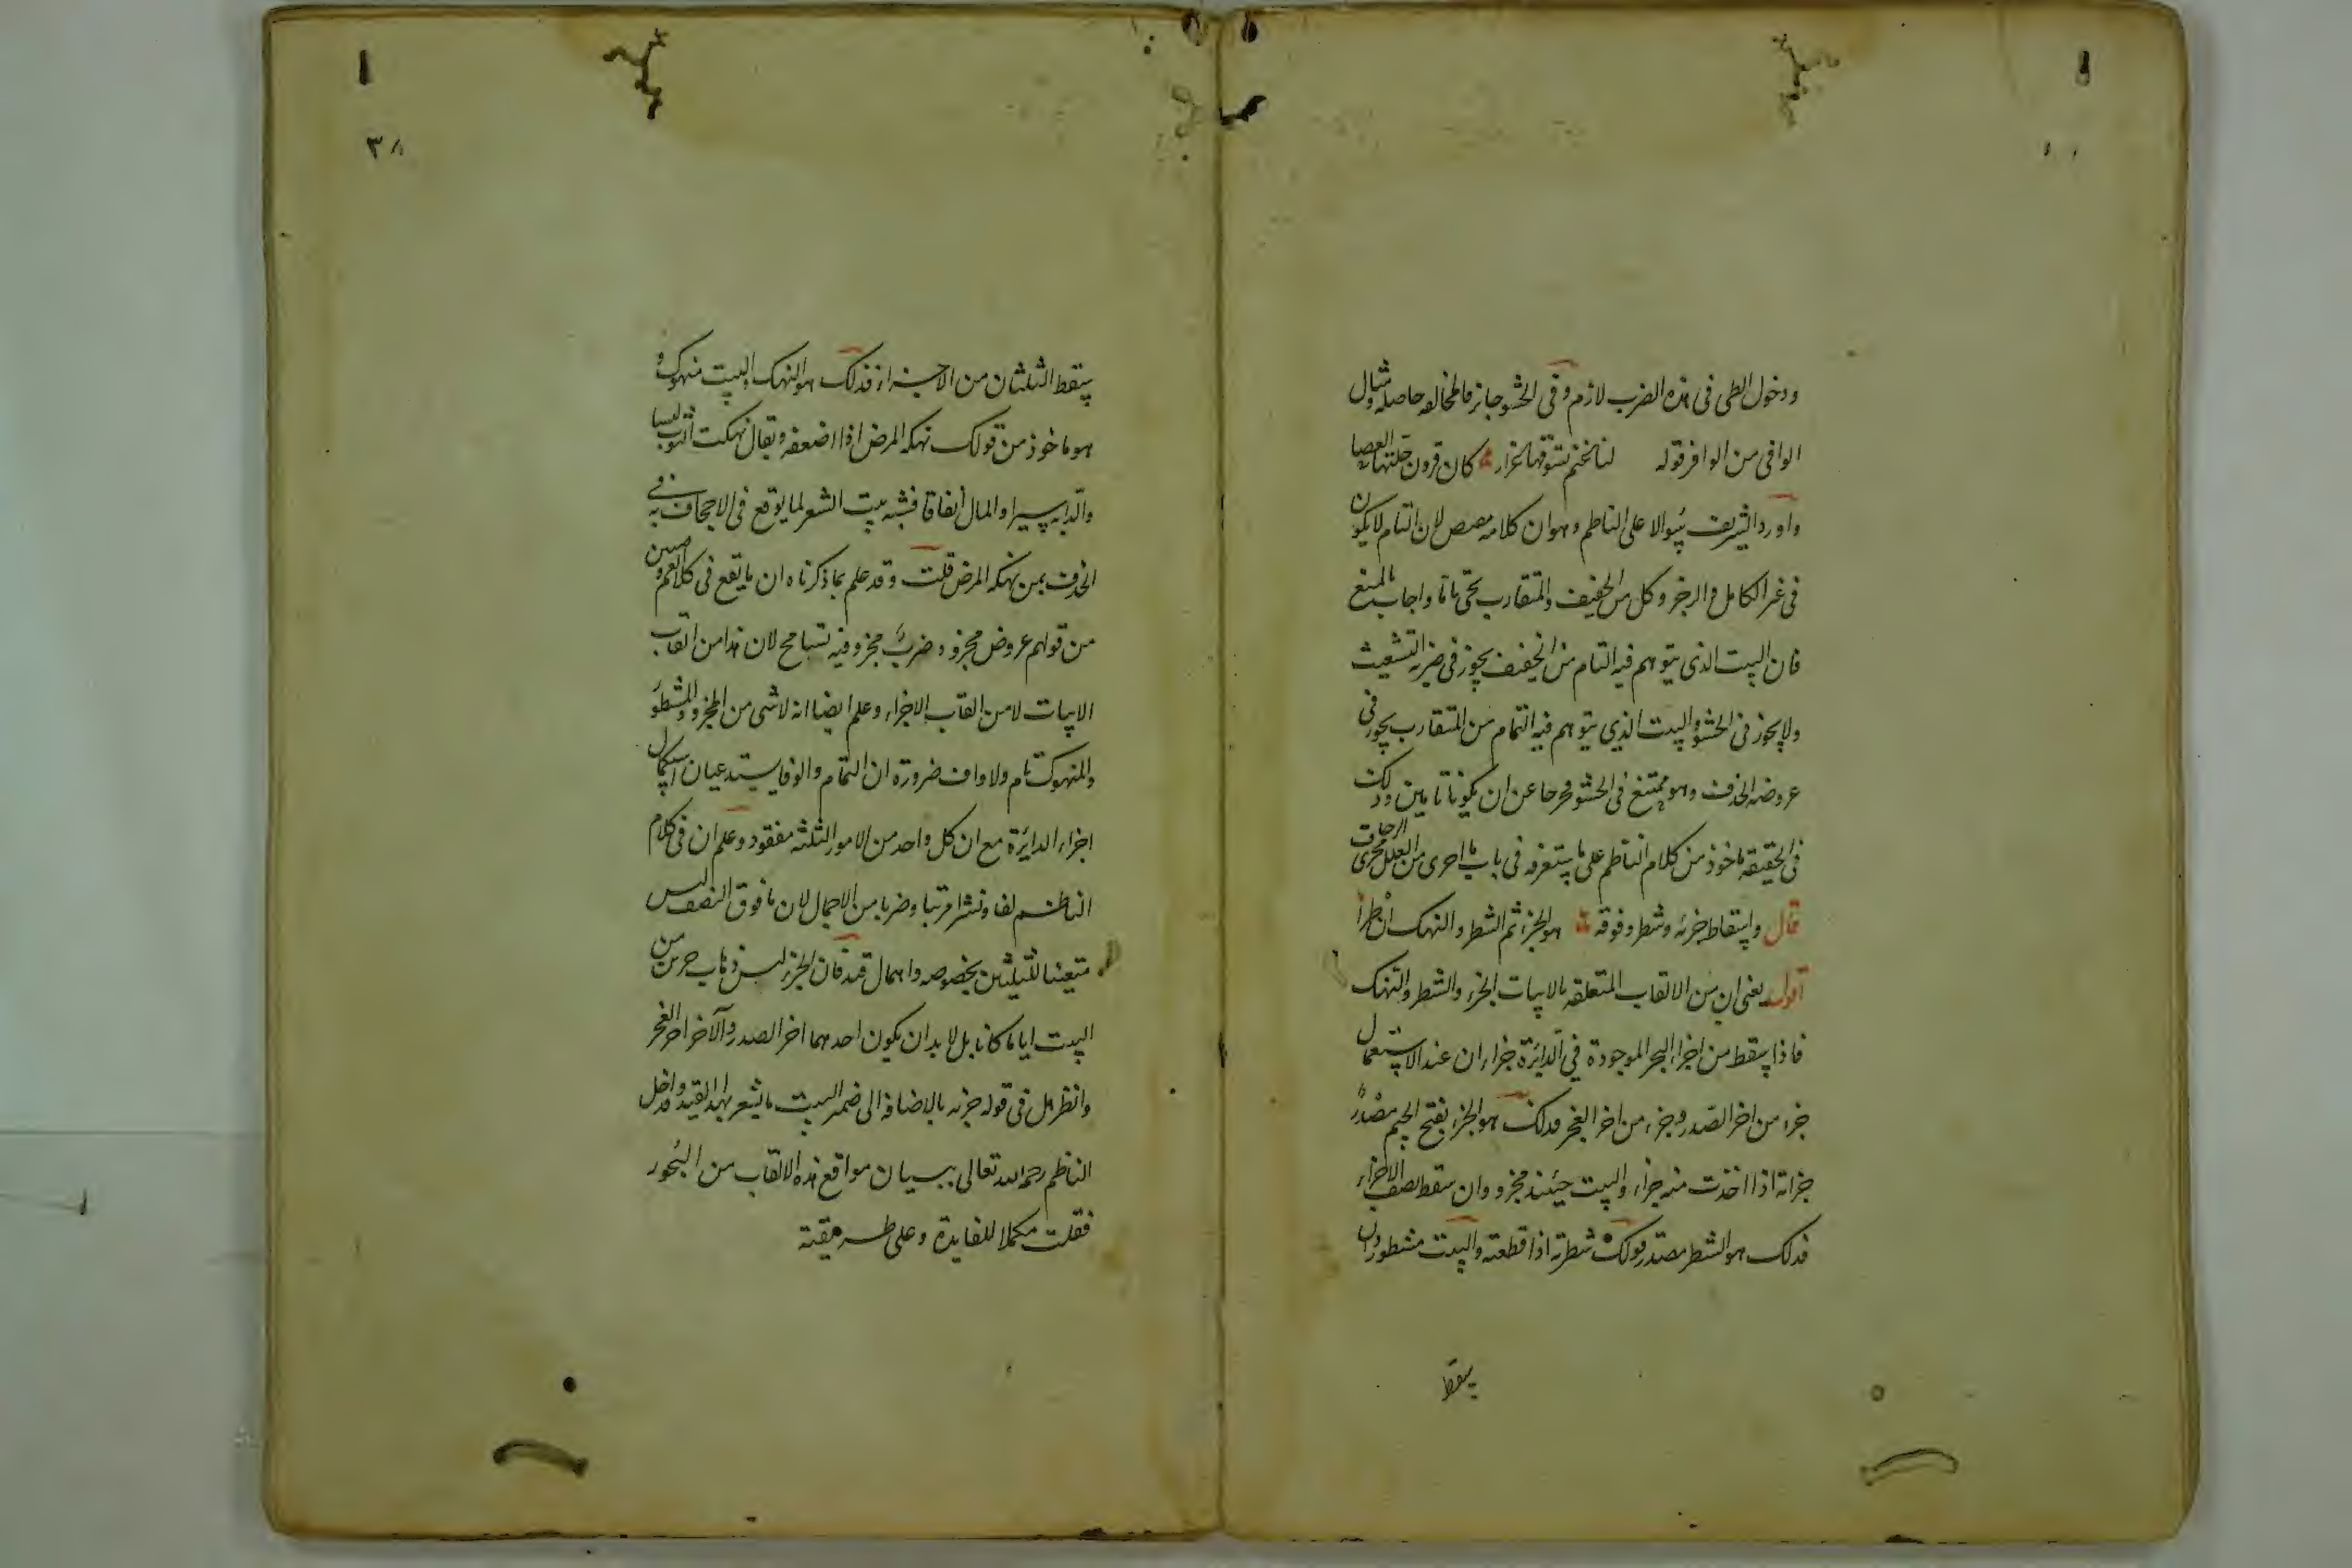 ودخول الطى فى هذه الضرب لازم وفى الحشو جائز فالمخالفه حاصله ومثال
الوافى من الوافر قوله لنا غنم نسوقها غزار كان قرون جلتها العصا
واورد الشريف سؤالا على الناظم وهو ان كلامه لان التام لا يكون
فى غير الكامل والرجز وكل من الخفيف والمتقارب يحى تاما واجاب بالمنع
فان البيت الذى يتوهم فيه التمام من الخفيف يجوز فى ضربه التشعيث
ولا يجوز فى الحشو والبيت الذى يتوهم فيه التمام من المتقارب يجوز فى
عروضه الحذف وهو ممتنع فى الحشو فخرجا عن ان يكونا تامين وذلك
فى الحقيقه ماخوذ من كلام الناظم على ما ستعرفه فى باب ما اجرى من العلل مجرى الزحاف
قال واسقاط جزئه وشطر وفوقه هو الجزء ثم الشطر والنهك ان طرا
اقول يعنى ان من الالقاب المتعلقه بالابيات الجزء والشطر والنهك
فاذا سقط من اجزاء البحر الموجودة فى الدايرة جزاان عند الاستعمال
جزء من اخر الصدر وجزء من اخر العجز فذلك هو الجزء بفتح الجيم مصدر
جزاته اذا اخذت منه جزاء والبيت حينئذ مجزو وان سقط نصف الاجزاء
فذلك هو الشطر مصدر قولك شطرته اذا قطعته والبيت مشطور وان
يسقط
٣٨
يسقط الثلثان من الاجزاء فذلك هو النهك والبيت منهوك و
هو ماخوذ من قولك نهكه المرض اذا اضعفه ويقال نهكت الثوب لبسا
والدابه سيرا والمال انفاقا فشبه بيت الشعر لما يوقع فى الاجحاف به فى
الحذف بمن نهكه المرض قلت وقد علم بما ذكرناه ان ما يقع فى كلام العروضيين
من قولهم عروض مجزوه وضرب مجزو فيه تسامح لان هذا من القاب
الابيات لا من القاب الاجزاء وعلم ايضا انه لا شى من المجزو والمشطور
والمنهوك تام ولا واف ضرورة ان التمام والوفا يستدعيان استكمال
اجزاء الدايرة مع ان كل واحد من الامور الثلثه مفقود وعلم ان فى كلام
الناظم لفا ونشرا مرتبا وضربا من الاجمال لان ما فوق النصف ليس
متعينا للثلثين بخصوصه واهمال قيد فان الجزء ليس ذهاب جزئين من
البيت ايا ما كانا بل لا بد ان يكون احدهما اخر الصدر والآخر اخر العجز
وانظر هل فى قوله جزئه بالاضافه الى ضمير البيت ما يشعر بهذا القيد وقد اخل
الناظم رحمه الله تعالى ببيان مواقع هذه الالقاب من البحور
فقلت مكملا للفايدة وعلى طريقته